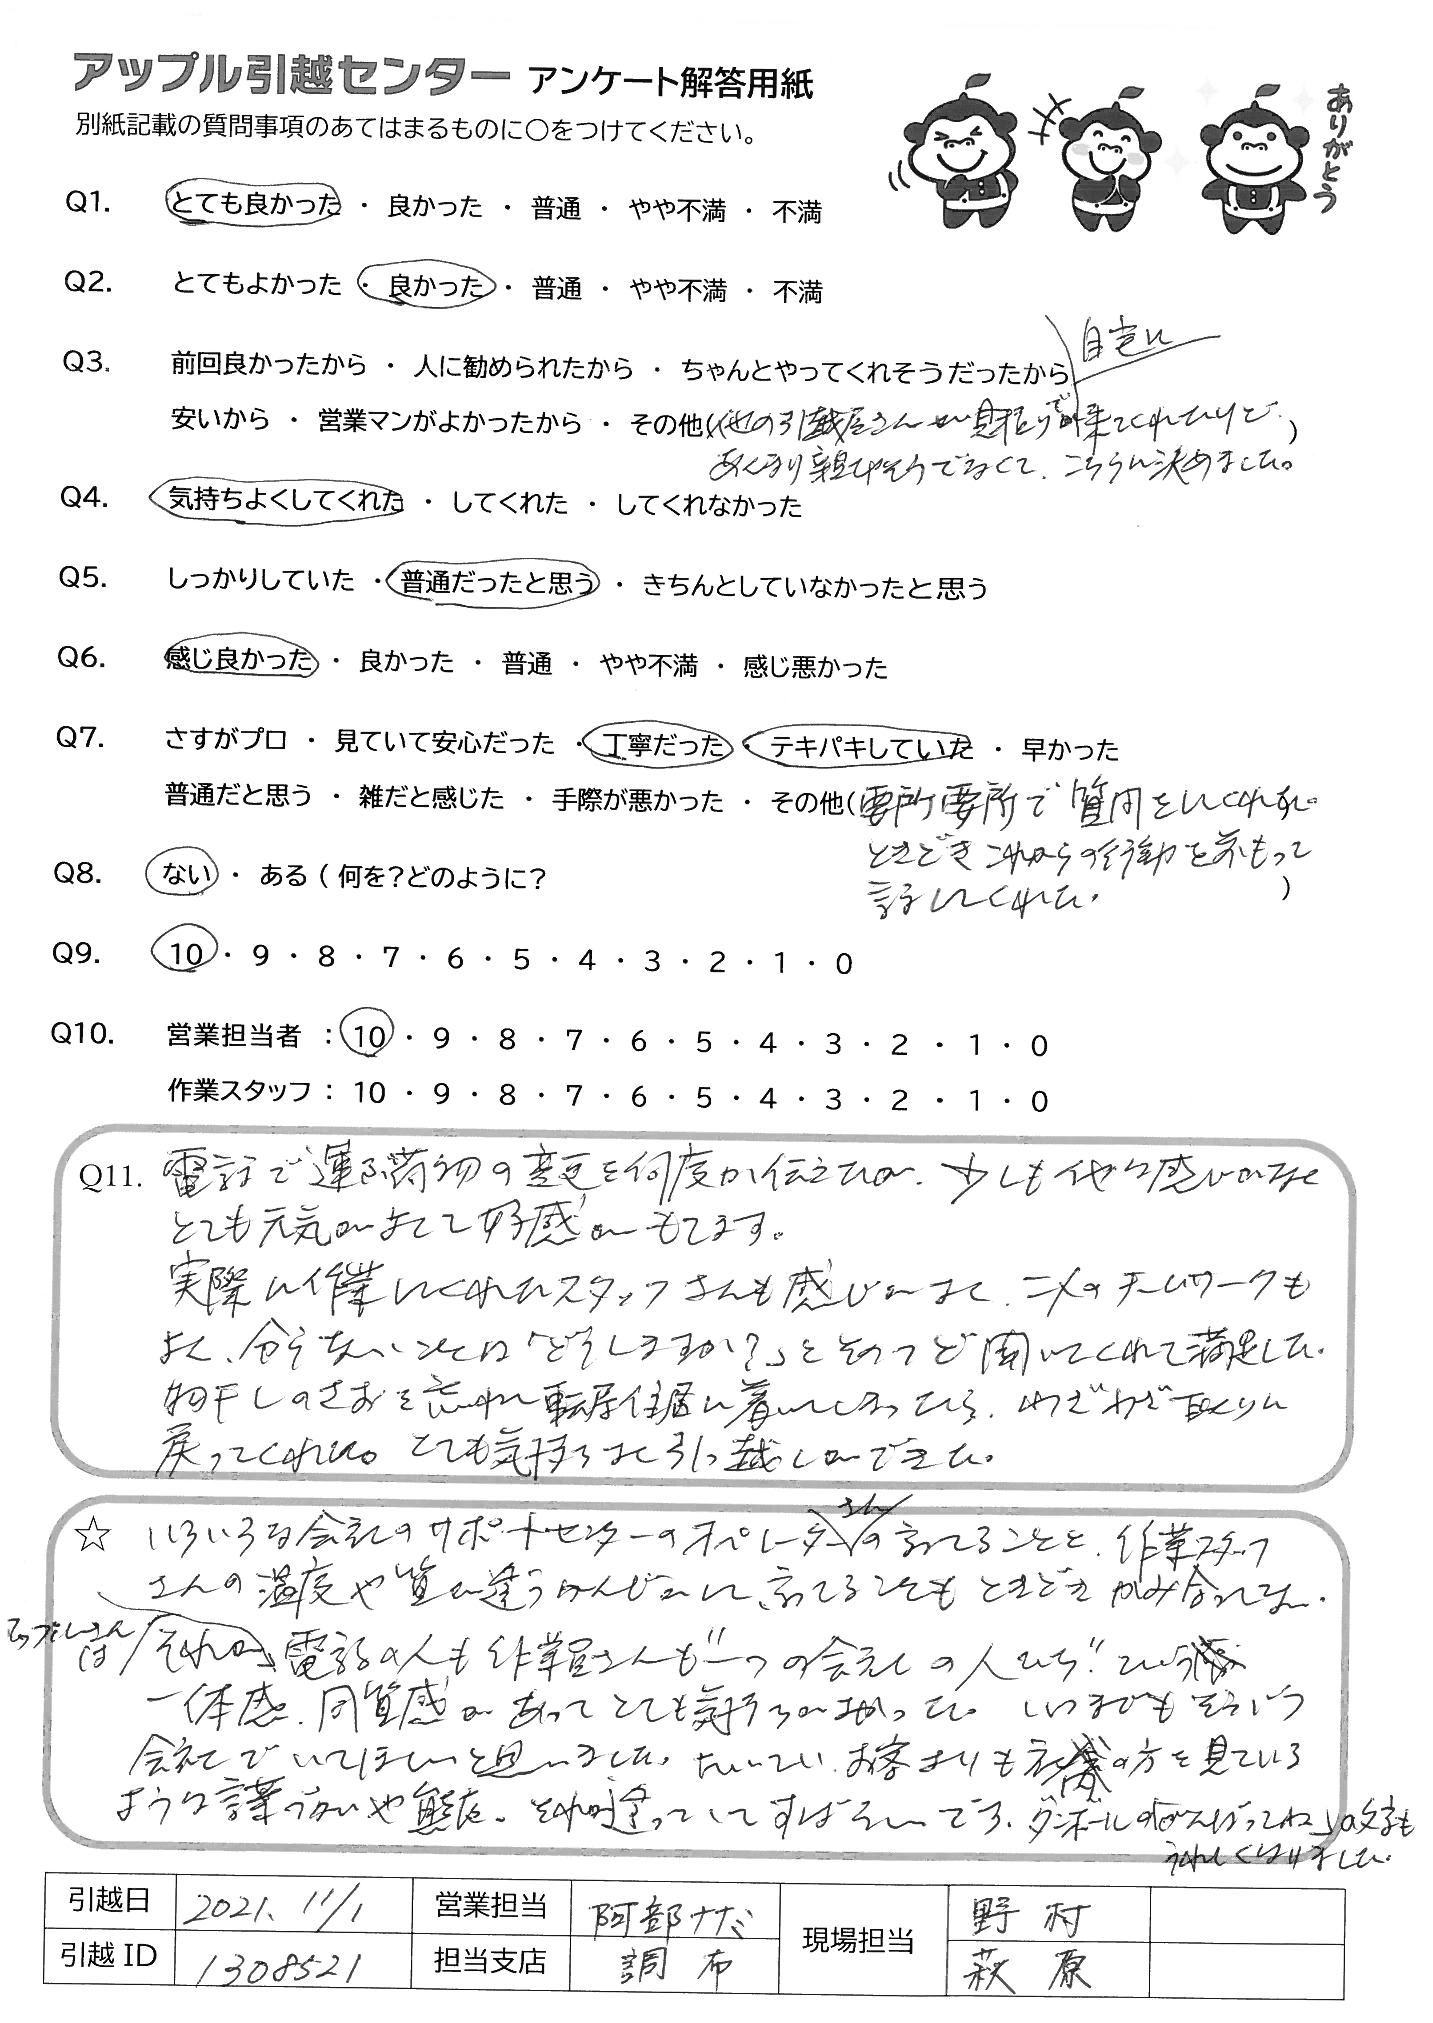 アップル引越センター アンケート解答用紙
別紙記載の質問事項のあてはまるものに○をつけてください。
ありがとう
Q1. とても良かった ・ 良かった ・ 普通 ・ やや不満 ・ 不満
Q2. とてもよかった ・ 良かった ・ 普通 ・ やや不満 ・ 不満
Q3. 前回良かったから ・ 人に勧められたから ・ ちゃんとやってくれそうだったから
自宅に
安いから ・ 営業マンがよかったから ・ その他(他の引越屋さんが見積りで来てくれたけど、
あんまり親せつそうでなくて、こちらに決めました。)
Q4. 気持ちよくしてくれた ・ してくれた ・ してくれなかった
Q5. しっかりしていた ・ 普通だったと思う ・ きちんとしていなかったと思う
Q6. 感じ良かった ・ 良かった ・ 普通 ・ やや不満 ・ 感じ悪かった
Q7. さすがプロ ・ 見ていて安心だった ・ 丁寧だった ・ テキパキしていた ・ 早かった
普通だと思う ・ 雑だと感じた ・ 手際が悪かった ・ その他(要所要所で質問をしてくれた。
ときどきこれからの行動を前もって
話してくれた。)
Q8. ない ・ ある ( 何を?どのように?
Q9. 10 ・ 9 ・ 8 ・ 7 ・ 6 ・ 5 ・ 4 ・ 3 ・ 2 ・ 1 ・ 0
Q10. 営業担当者 : 10 ・ 9 ・ 8 ・ 7 ・ 6 ・ 5 ・ 4 ・ 3 ・ 2 ・ 1 ・ 0
作業スタッフ : 10 ・ 9 ・ 8 ・ 7 ・ 6 ・ 5 ・ 4 ・ 3 ・ 2 ・ 1 ・ 0
Q11. 電話で運ぶ荷物の変更を何度か伝えたが、少しも
とても元気がよくて好感がもてます。
実際に作業してくれたスタッフさんも感じがよく、二人のチームワークも
よく、分らないことは「どうしますか?」とそのつど聞いてくれて満足した。
物干しのさおを忘れ転居住居に着いてしまったら、わざわざ取りに
戻ってくれた。とても気持ちよく引っ越しができた。
☆ いろいろな会社のサポートセンターのオペレーターさんの言ってることと、作業スタッフ
さんの温度や質が違うかんじがして、言ってることもときどきかみ合ってない。
は それが、電話の人も作業員さんも"一つの会社の人たち"という
一体感、同質感があってとても気持ちがよかった。いつまでもそういう
会社でいてほしいと思いました。たいてい、お客よりも社内の方を見ている
ような言葉づかいや態度。それが違っていてすばらしいです。ダンボールの「がんばってね」の文字も
うれしくなりました。
引越日 2021. 11/1 営業担当 阿部ナナミ 現場担当 野村
引越ID 1308521 担当支店 調布 萩原